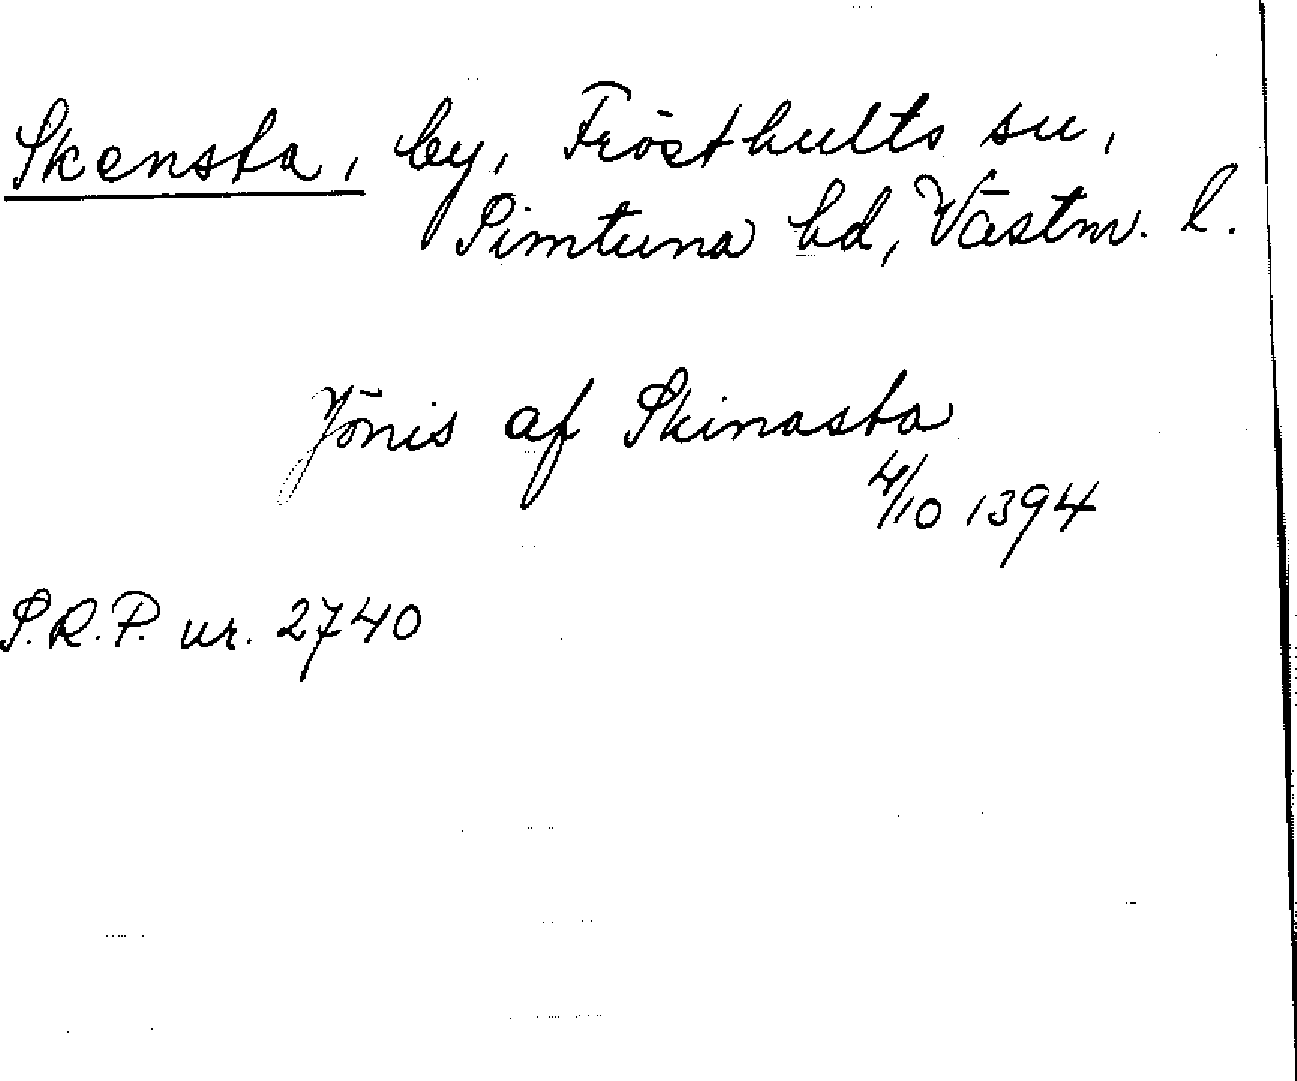 Skensta, by, Frösthults sn,
Simtuna hd, Västm. l.
Jönis af Skinasta
4/10 1394
S.R.P. nr. 2740